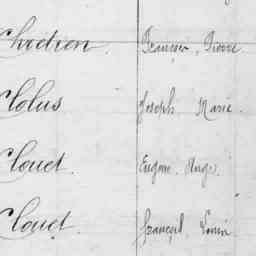 Chrétien. François, Pierre
Colus Joseph Marie.
Clouet. Eugène Ange.
Clouet. François, Louis